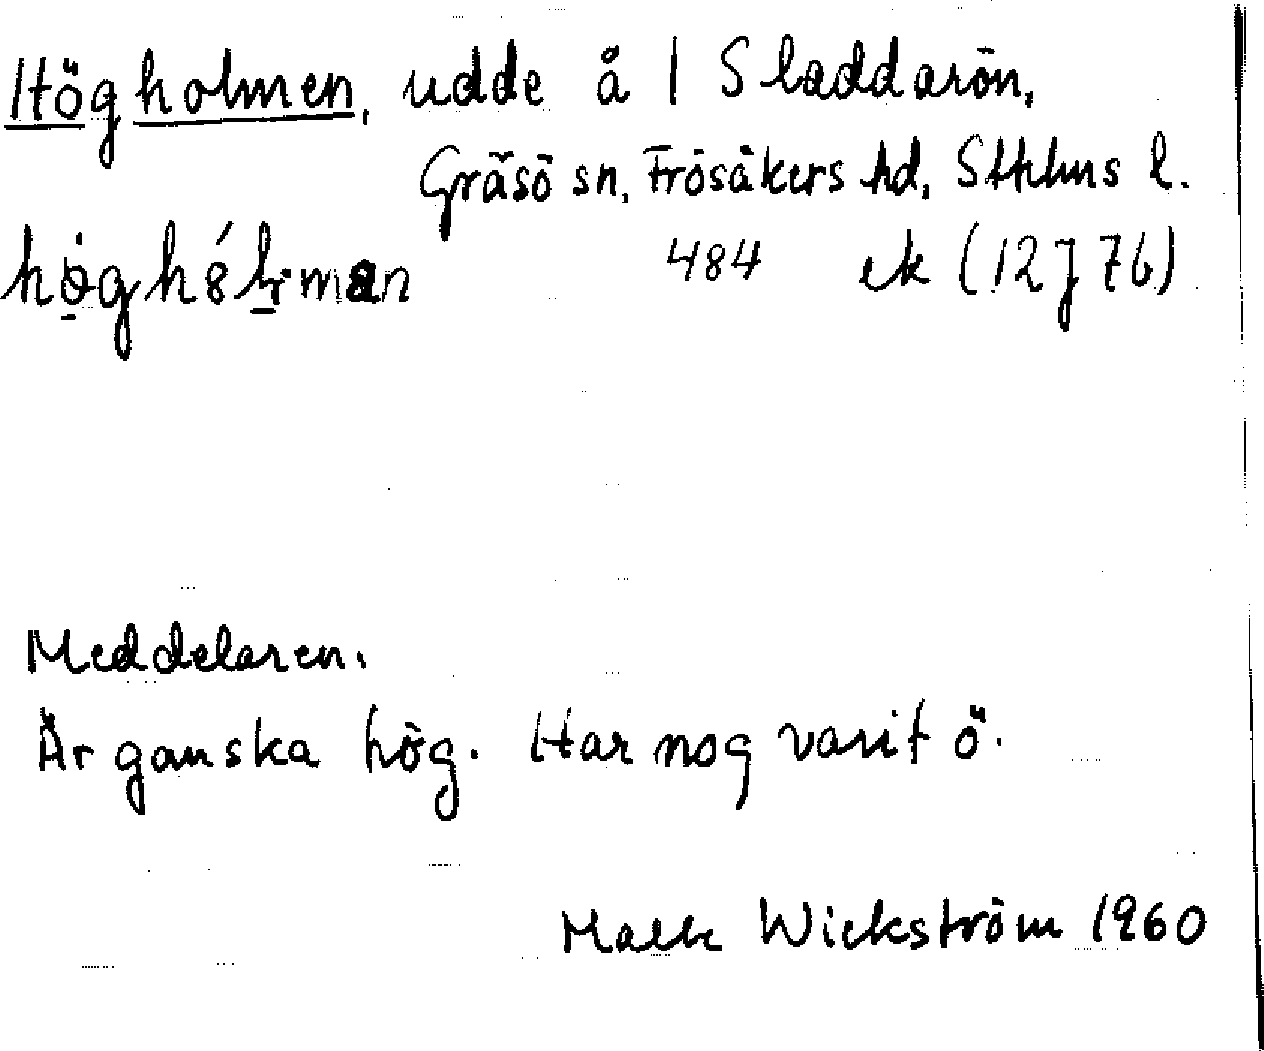 Högholmen, udde å | Sladdarön,
Gräsö sn, Frösåkers hd, Sthlms l.
484 ek (12J76)
Meddelaren.
Är ganska hög. Har nog varit ö.
Wickström 1960